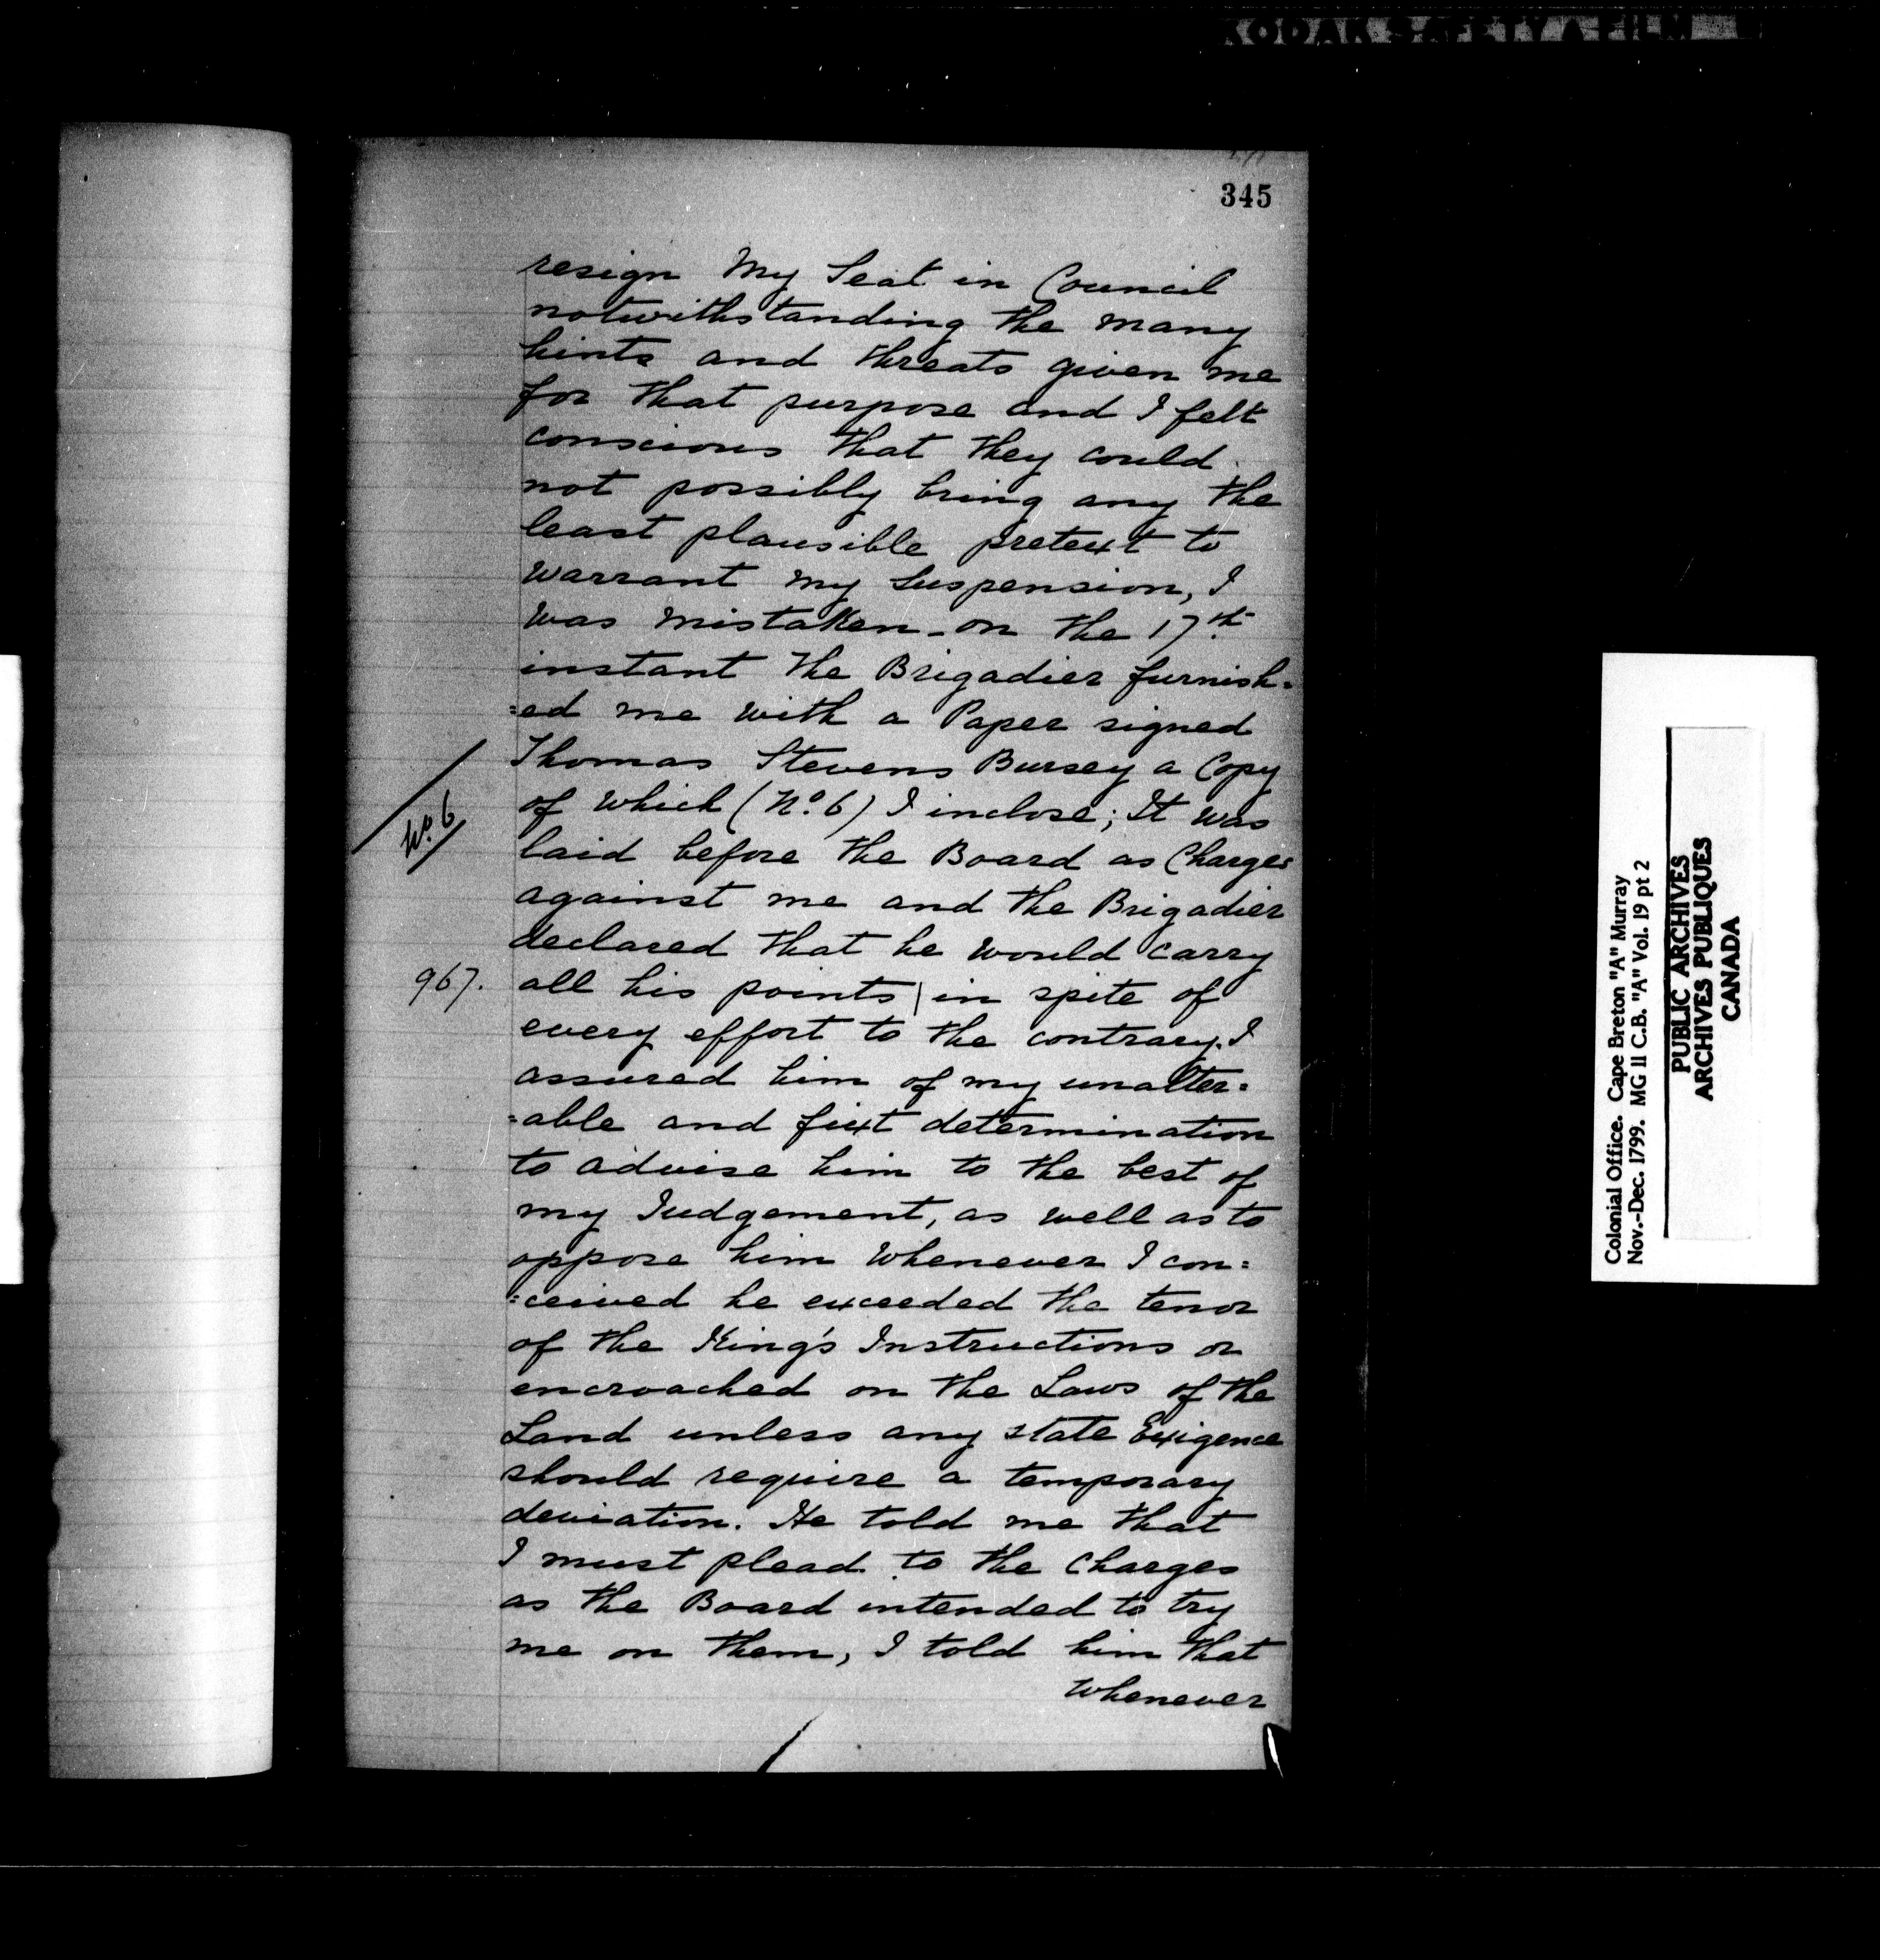 KODAK SAFETY FILM
345
resign My Seat in Council
notwithstanding the many
hints and threats given me
for that purpose and I felt
conscious that they could
not possibly bring any the
least plausible pretext to
warrant my Suspension, I
was mistaken - on the 17th
instant the Brigadier furnish=
=ed me with a Paper signed
Thomas Stevens Bursey a Copy
No. 6
of which (No. 6) I inclose; It was
laid before the Board as Charges
against me and the Brigadier
declared that he would carry
967.
all his points | in spite of
every effort to the contrary. I
assured him of my unalter=
=able and fixt determination
to advise him to the best of
my Judgement, as well as to
oppose him whenever I con=
=ceived he exceeded the tenor
of the King's Instructions or
encroached on the Laws of the
Land unless any state Exigence
should require a temporary
deviation. He told me that
I must plead to the Charges
as the Board intended to try
me on them, I told him that
whenever
Colonial Office. Cape Breton "A" Murray
Nov.-Dec. 1799. MG 11 C.B. "A" Vol. 19 pt 2
PUBLIC ARCHIVES
ARCHIVES PUBLIQUES
CANADA